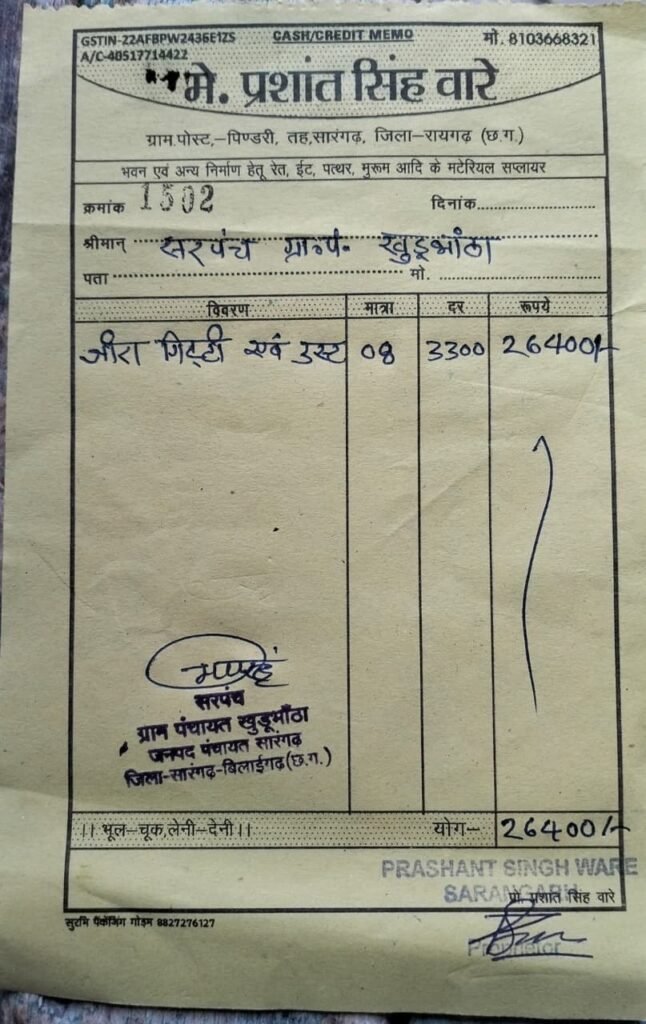 GSTIN-22AFBPW2436E1ZS CASH/CREDIT MEMO मो. 8103668321
A/C-40517714422
मे. प्रशांत सिंह वारे
ग्राम.पोस्ट,–पिण्डरी, तह,सारंगढ़, जिला–रायगढ़ (छ.ग.)
भवन एवं अन्य निर्माण हेतू रेत, ईट, पत्थर, मुरूम आदि के मटेरियल सप्लायर
क्रमांक 1502 दिनांक
श्रीमान् सरपंच ग्रा.पं. खुडूभांठा
पता मो.
विवरण मात्रा दर रूपये
जीरा गिट्टी एवं डस्ट 08 3300 26400/-
सरपंच
ग्राम पंचायत खुडूभाँठा
जनपद पंचायत सारंगढ़
जिला-सारंगढ़-बिलाईगढ़(छ.ग.)
।। भूल–चूक,लेनी–देनी।। योग– 26400/-
PRASHANT SINGH WARE
SARANGARH
प्रो. प्रशांत सिंह वारे
सुरभि पैकेजिंग गोड़म 8827276127
Proprietor